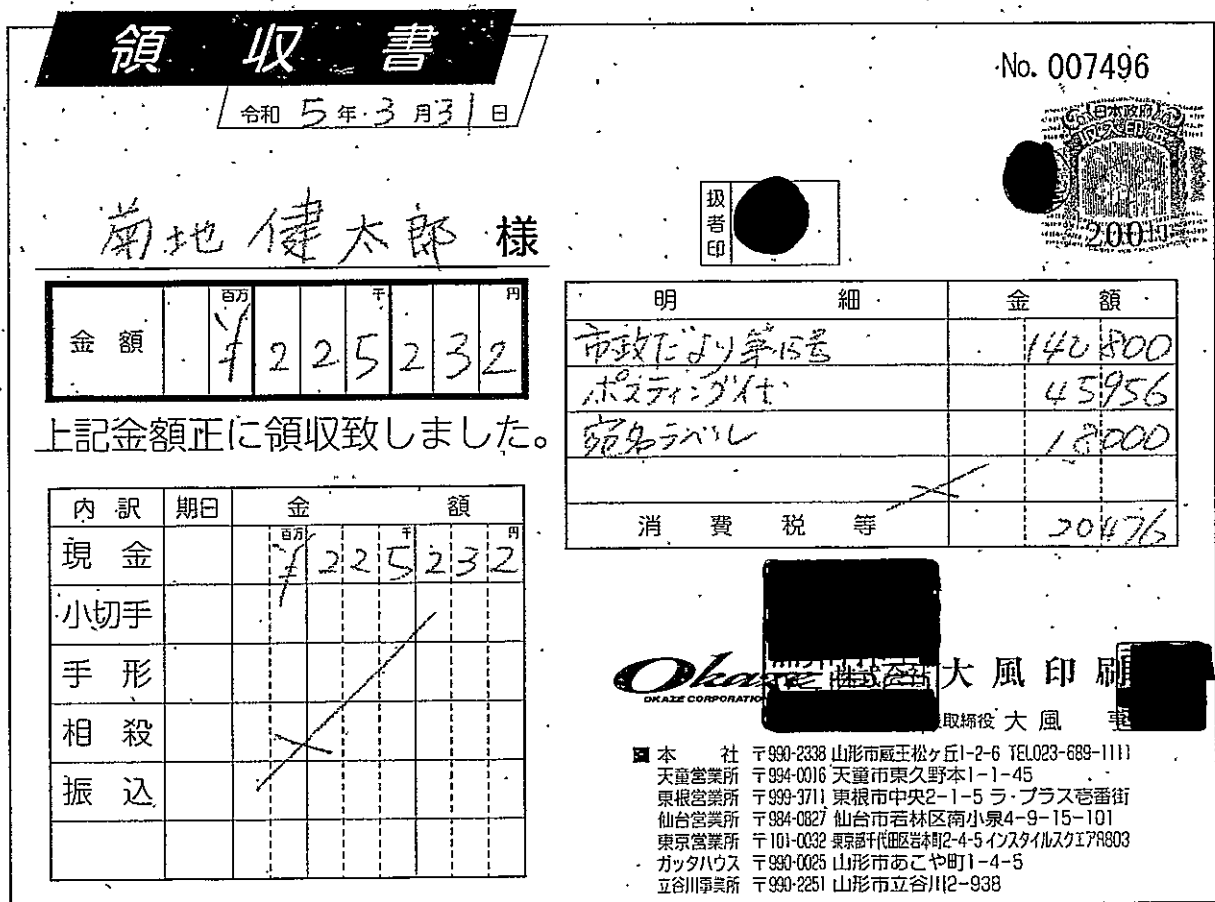 領収書
No. 007496
令和 5年3月31日
日本政府
収入印紙
200円
菊地健太郎 様
扱者印
金額 百万 千 円
¥225232
上記金額正に領収致しました。
明細 金額
市政だより第15号 140800
ポスティング代 45956
宛名ラベル 18000
消費税等 20476
内訳 期日 金額
百万 千 円
現金 ¥225232
小切手
手形
相殺
振込
Okaze 株式会社 大風印刷
OKAZE CORPORATION
取締役 大風
本社 〒990-2338 山形市蔵王松ヶ丘1-2-6 TEL023-689-1111
天童営業所 〒994-0016 天童市東久野本1-1-45
東根営業所 〒999-3711 東根市中央2-1-5 ラ・プラス壱番街
仙台営業所 〒984-0827 仙台市若林区南小泉4-9-15-101
東京営業所 〒101-0032 東京都千代田区岩本町2-4-5 インスタイルスクエア803
ガッタハウス 〒990-0025 山形市あこや町1-4-5
立谷川事業所 〒990-2251 山形市立谷川2-938